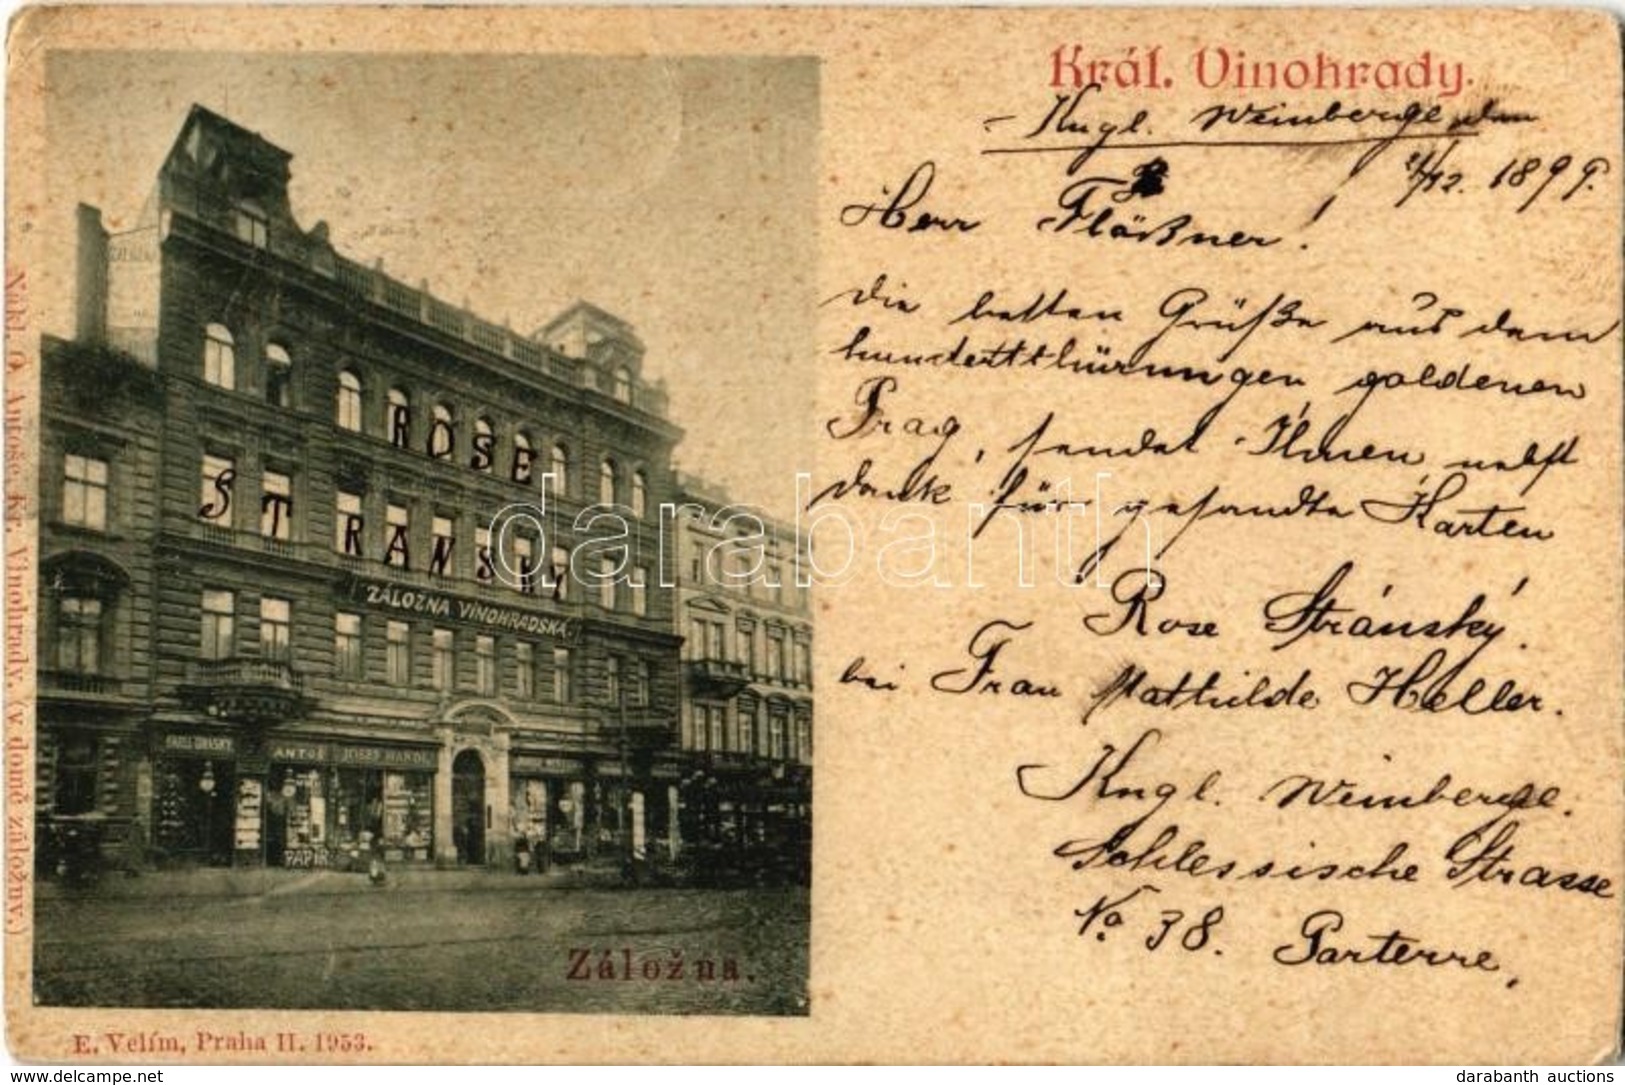 Král. Vinohrady.
Kngl. Weinberge, den
21/12. 1899.
Herr Flößner!
die besten Grüße aus dem
hundertthürmigen goldenen
Prag, sendet Ihnen nebst
dank für gesandte Karten
Rose Stránský.
bei Frau Mathilde Heller.
Kngl. Weinberge.
Schlessische Strasse
No 38. Parterre,
ROSE
STRANSKY
ZÁLOŽNA VINOHRADSKÁ
ANTOŠ JOSEF HANDL
PAPÍR
Záložna.
Nákl. O. Antoše, Kr. Vinohrady, (v domě záložny.)
E. Velím, Praha II. 1953.
darabanth
delcampe.net
darabanth auctions